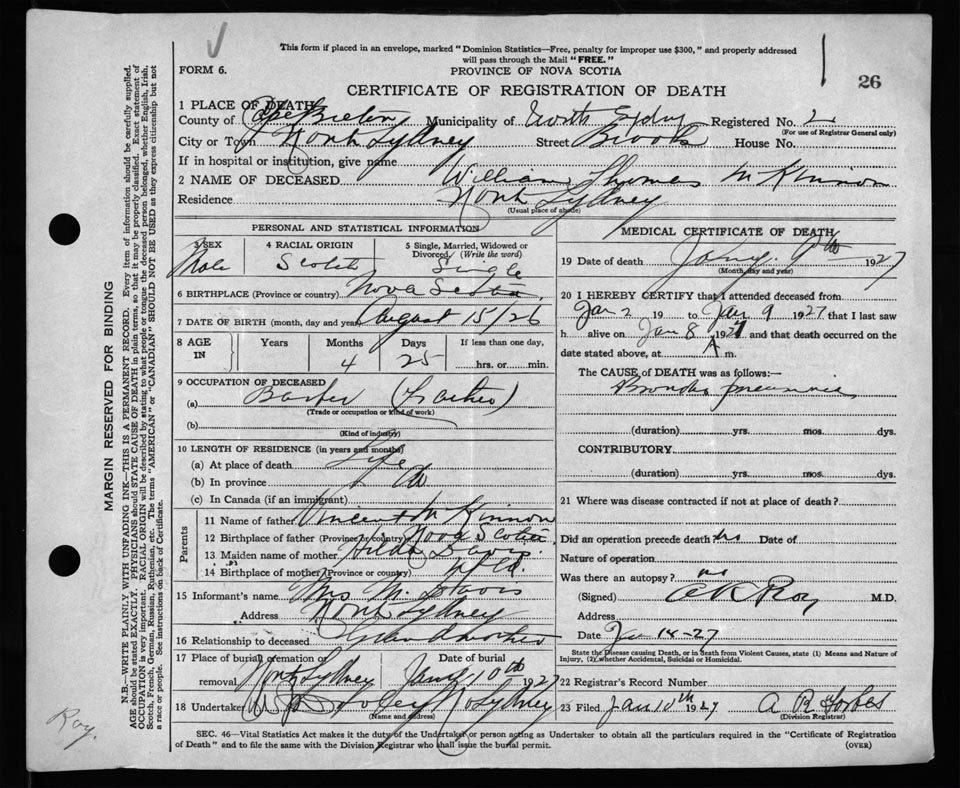 This form if placed in an envelope, marked "Dominion Statistics—Free, penalty for improper use $300," and properly addressed
will pass through the Mail "FREE."
FORM 6.
PROVINCE OF NOVA SCOTIA
26
CERTIFICATE OF REGISTRATION OF DEATH
1 PLACE OF DEATH
County of Cape Breton Municipality of North Sydney Registered No. 2
(For use of Registrar General only)
City or Town North Sydney Street Brook House No.
If in hospital or institution, give name
2 NAME OF DECEASED William Thomas McKinnon
Residence North Sydney
(Usual place of abode)
PERSONAL AND STATISTICAL INFORMATION
3 SEX 4 RACIAL ORIGIN 5 Single, Married, Widowed or
Divorced (Write the word)
Male Scotch Single
6 BIRTHPLACE (Province or country) Nova Scotia
7 DATE OF BIRTH (month, day and year) August 15/26
8 AGE IN Years Months Days If less than one day,
4 25 hrs. or min.
9 OCCUPATION OF DECEASED
(a) Barber (Father)
(Trade or occupation or kind of work)
(b)
(Kind of industry)
10 LENGTH OF RESIDENCE (in years and months)
(a) At place of death Life
(b) In province Do
(c) In Canada (if an immigrant)
Parents
11 Name of father Vincent McKinnon
12 Birthplace of father (Province or country) Nova Scotia
13 Maiden name of mother Hilda Davis
14 Birthplace of mother (Province or country) Nfld.
15 Informant's name Mrs M. Davis
Address North Sydney
16 Relationship to deceased Grandmother
17 Place of burial, cremation or Date of burial
removal North Sydney Jany 10th 1927
18 Undertaker Foley No Sydney
(Name and address)
MEDICAL CERTIFICATE OF DEATH
19 Date of death Jany. 9th 1927
(Month, day and year)
20 I HEREBY CERTIFY that I attended deceased from
Jan 2 19 to Jan 9 1927 that I last saw
h alive on Jan 8 1927 and that death occurred on the
date stated above, at A m.
The CAUSE of DEATH was as follows:—
Broncho pneumonia
(duration) yrs. mos. dys.
CONTRIBUTORY
(duration) yrs. mos. dys.
21 Where was disease contracted if not at place of death?
Did an operation precede death no Date of
Nature of operation
Was there an autopsy? no
(Signed) Roy M.D.
Address
Date Jan 14-27
State the Disease causing Death, or in death from Violent Causes, state (1) Means and Nature of
Injury, (2) whether Accidental, Suicidal or Homicidal.
22 Registrar's Record Number
23 Filed Jan 10th 1927 A R Forbes
(Division Registrar)
SEC. 46—Vital Statistics Act makes it the duty of the Undertaker or person acting as Undertaker to obtain all the particulars required in the "Certificate of Registration
of Death" and to file the same with the Division Registrar who shall issue the burial permit.
(OVER)
MARGIN RESERVED FOR BINDING
N.B.—WRITE PLAINLY WITH UNFADING INK—THIS IS A PERMANENT RECORD. Every item of information should be carefully supplied.
AGE should be stated EXACTLY. PHYSICIANS should STATE CAUSE OF DEATH in plain terms, so that it may be properly classified. Exact statement of
OCCUPATION is very important. RACIAL ORIGIN will be described by stating to what people or tongue the deceased person belonged, whether English, Irish,
Scotch, French, German, Russian, Ruthenian, etc. The terms "AMERICAN" or "CANADIAN" SHOULD NOT BE USED as they express citizenship but not
a race or people. See instructions on back of Certificate.
Roy.